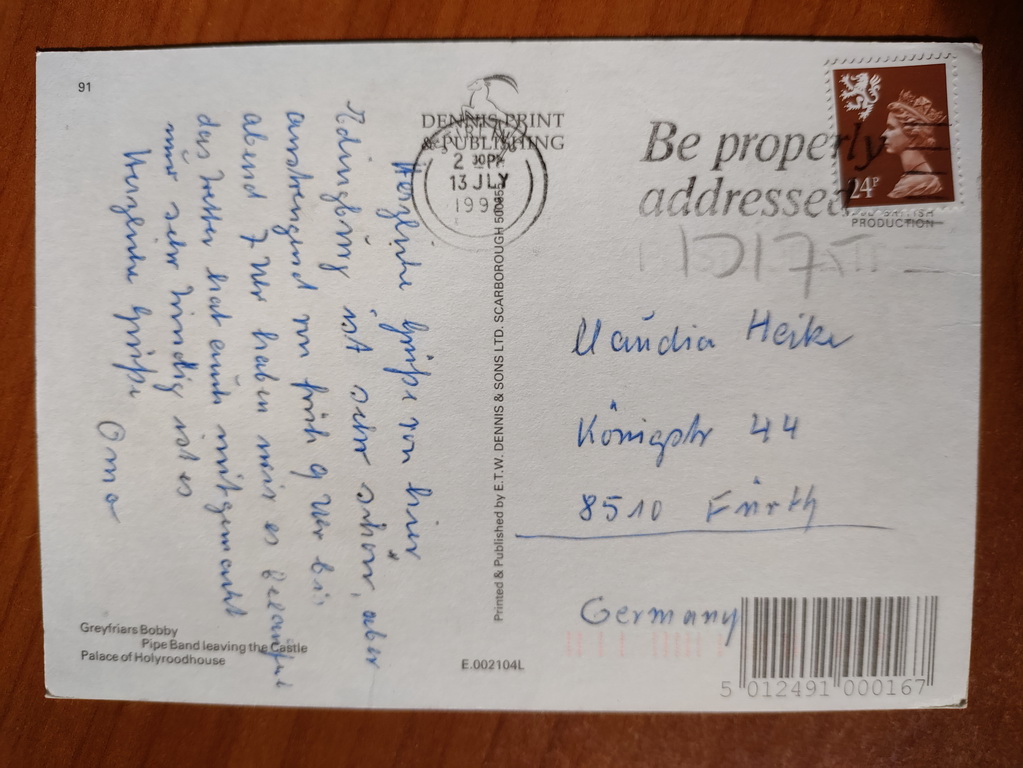 91
DENNIS PRINT
& PUBLISHING
2 PM
13 JLY
Be properly
addressed
24P
PRODUCTION
Herzliche Grüße von hier
Edingburg ist sehr schön, aber
anstrengend von früh 9 Uhr bis
abend 7 Uhr haben wir es
das Wetter hat auch mitgemacht
nur sehr windig ist es
Herzliche Grüße
Oma
Claudia Heike
Königstr 44
8510 Fürth
Germany
Printed & Published by E.T.W. DENNIS & SONS LTD. SCARBOROUGH
Greyfriars Bobby
Pipe Band leaving the Castle
Palace of Holyroodhouse
E.002104L
5 012491 000167